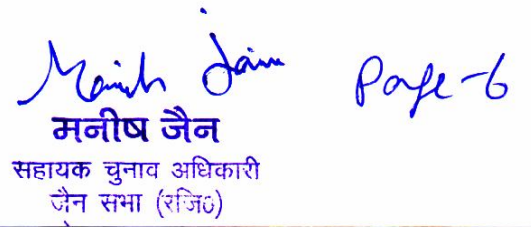 Manish Jain Page-6
मनीष जैन
सहायक चुनाव अधिकारी
जैन सभा (रजि0)